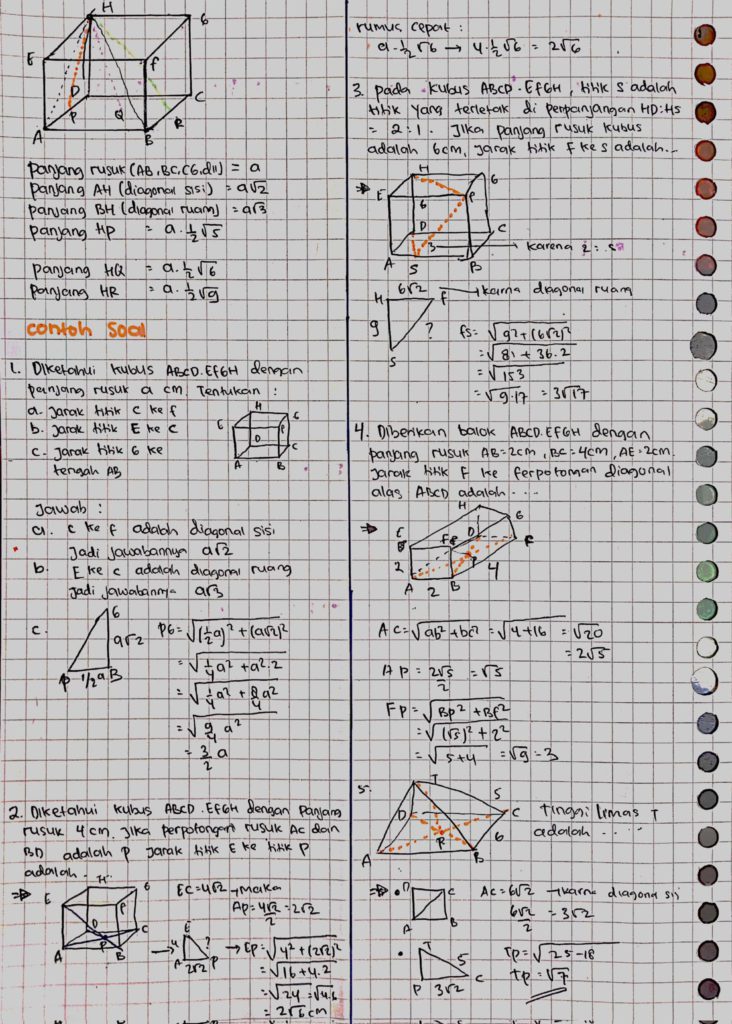 H
G
E
F
D
C
P
Q
A
B
R
panjang rusuk (AB, BC, CG, dll) = a
panjang AH (diagonal sisi) = a√2
panjang BH (diagonal ruam) = a√3
panjang HP = a. ½√5
panjang HQ = a. ½√6
panjang HR = a. ½√9
contoh soal
1. Diketahui kubus ABCD.EFGH dengan
panjang rusuk a cm. Tentukan :
a. Jarak titik C ke f
b. Jarak titik E ke C
c. Jarak titik G ke
tengah AB
H
G
E
P
D
C
A
B
Jawab :
a. C ke f adalah diagonal sisi
Jadi jawabannya a√2
b. E ke C adalah diagonal ruang
Jadi jawabannya a√3
c.
G
a√2
P 1/2 a B
PG = √(½a)² + (a√2)²
= √¼a² + a².2
= √¼a² + 8/4a²
= √9/4 a²
= 3/2 a
2. Diketahui kubus ABCD.EFGH dengan panjang
rusuk 4 cm. Jika perpotongan rusuk AC dan
BD adalah P jarak titik E ke titik P
adalah..
⇒
H
G
E
P
D
C
A
P
B
EC = 4√2 → maka
AP = 4√2/2 = 2√2
→
E
4
?
A 2√2 P
→ EP = √4² + (2√2)²
= √16 + 4.2
= √24 = √4.6
= 2√6 cm
rumus cepat :
a. ½√6 → 4. ½√6 = 2√6
3. pada kubus ABCD.EFGH, titik S adalah
titik yang terletak di perpanjangan HD:HS
= 2:1. Jika panjang rusuk kubus
adalah 6cm, jarak titik F ke S adalah...
⇒
H
G
E
P
6
D
C
3 → karena 2:
A
S
B
6√2
H
F → karna diagonal ruang
9
?
S
fs = √9² + (6√2)²
= √81 + 36.2
= √153
= √9.17 = 3√17
4. Diberikan balok ABCD.EFGH dengan
panjang rusuk AB = 2cm, BC = 4cm, AE = 2cm.
Jarak titik F ke perpotongan diagonal
alas ABCD adalah ....
⇒
E
D
G
2
P
4
A
2
B
AC = √ab² + bc² = √4+16 = √20
= 2√5
AP = 2√5/2 = √5
FP = √BP² + BF²
= √(√5)² + 2²
= √5+4 = √9 = 3
5.
T
5
D
C
P
6
A
B
Tinggi limas T
adalah .....
⇒
D
C
A
B
AC = 6√2 → karna diagonal sisi
6√2/2 = 3√2
T
5
P
C
3√2
TP = √25-18
TP = √7